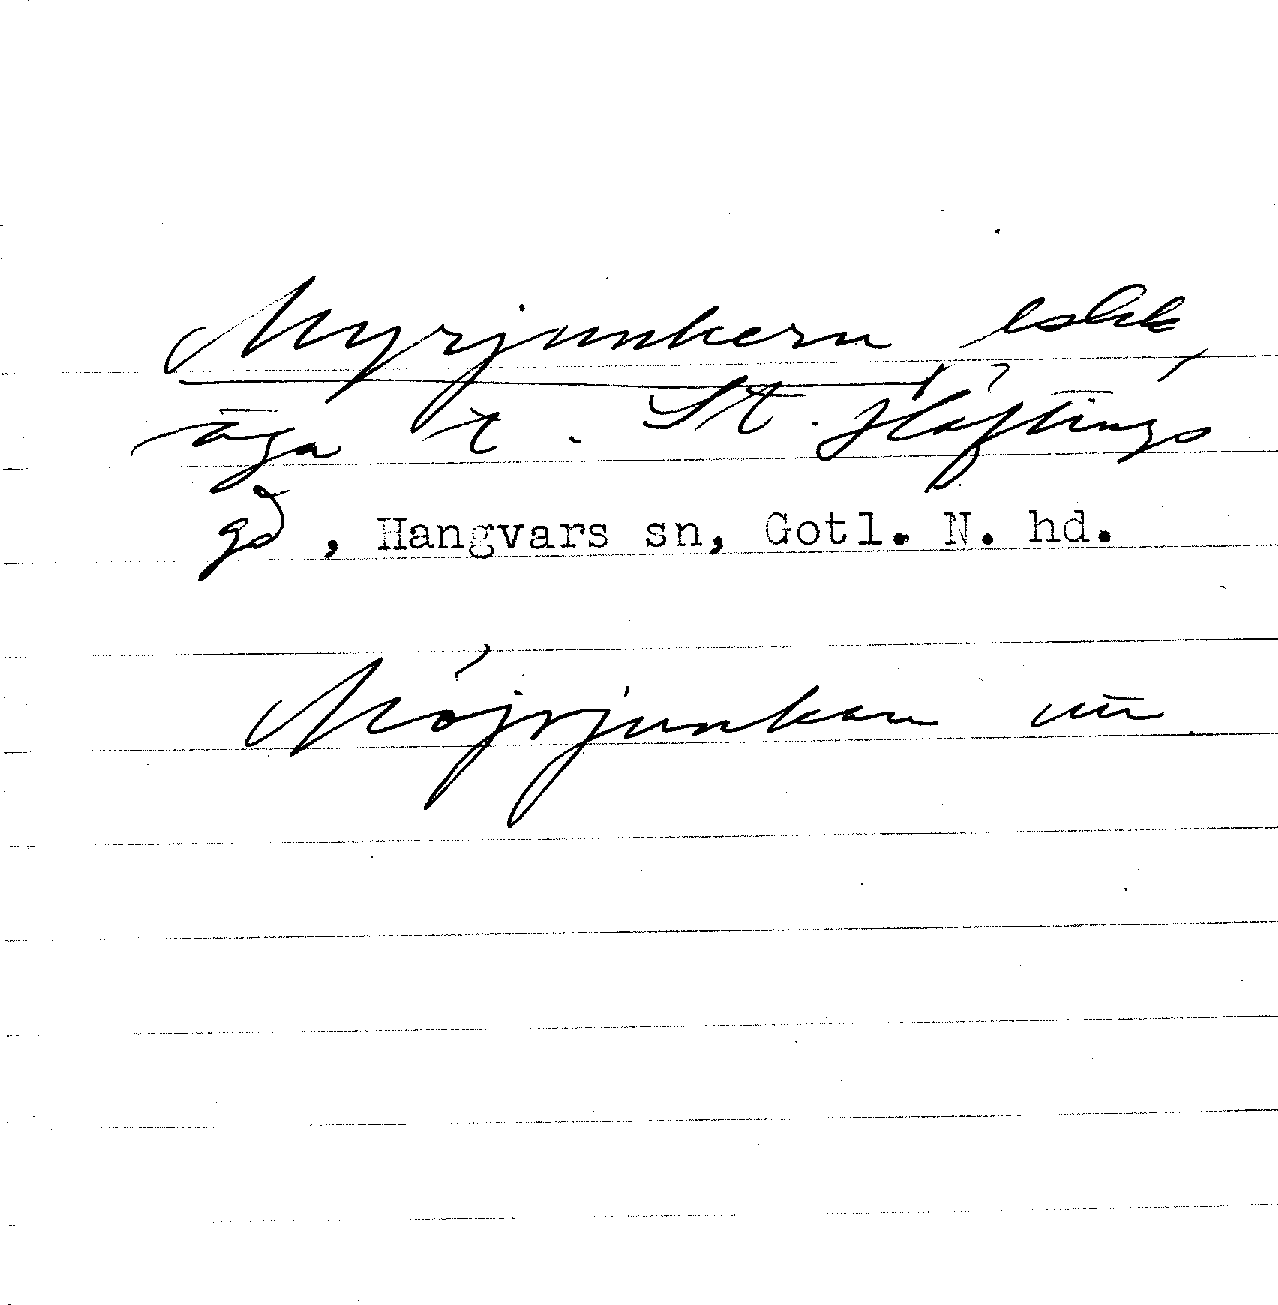 Myrjunkern lokk,
äga t. St. Häftings
gd, Hangvars sn, Gotl. N. hd.
Möjrjunkan